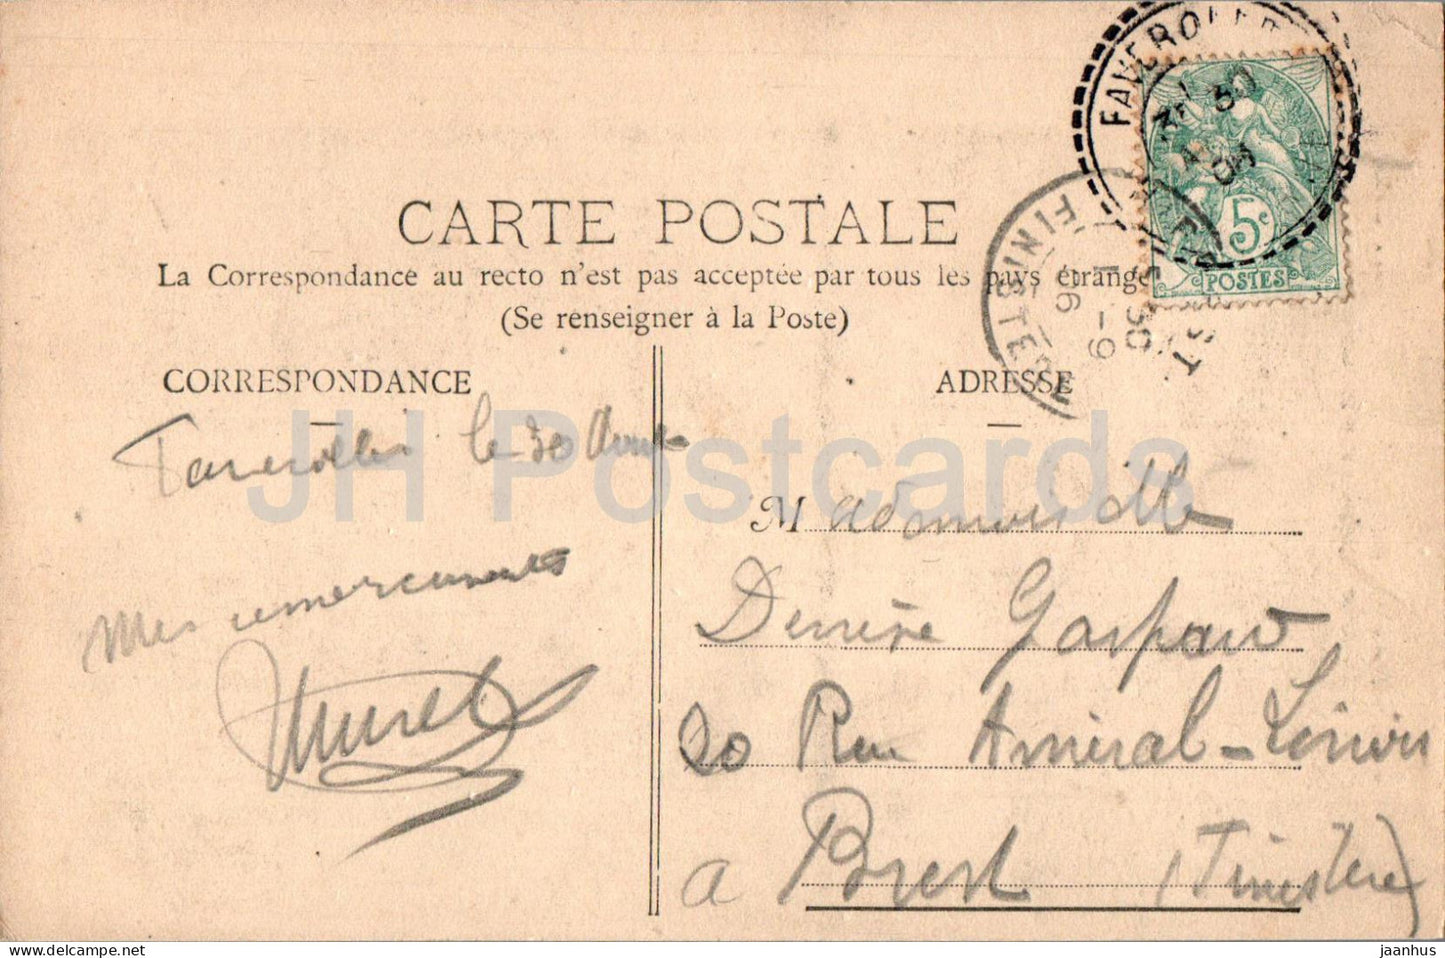 CARTE POSTALE
La Correspondance au recto n'est pas acceptée par tous les pays étrange
(Se renseigner à la Poste)
CORRESPONDANCE
ADRESSE
FAVEROLLE
30
AOUT
06
5c
POSTES
FINISTERE
Faverolles le 30 Aout
Mes remerciements
Mademoiselle
Gaspard
20 Rue Amiral-Linois
a Brest (Finistère)
JH Postcards
jaanhus